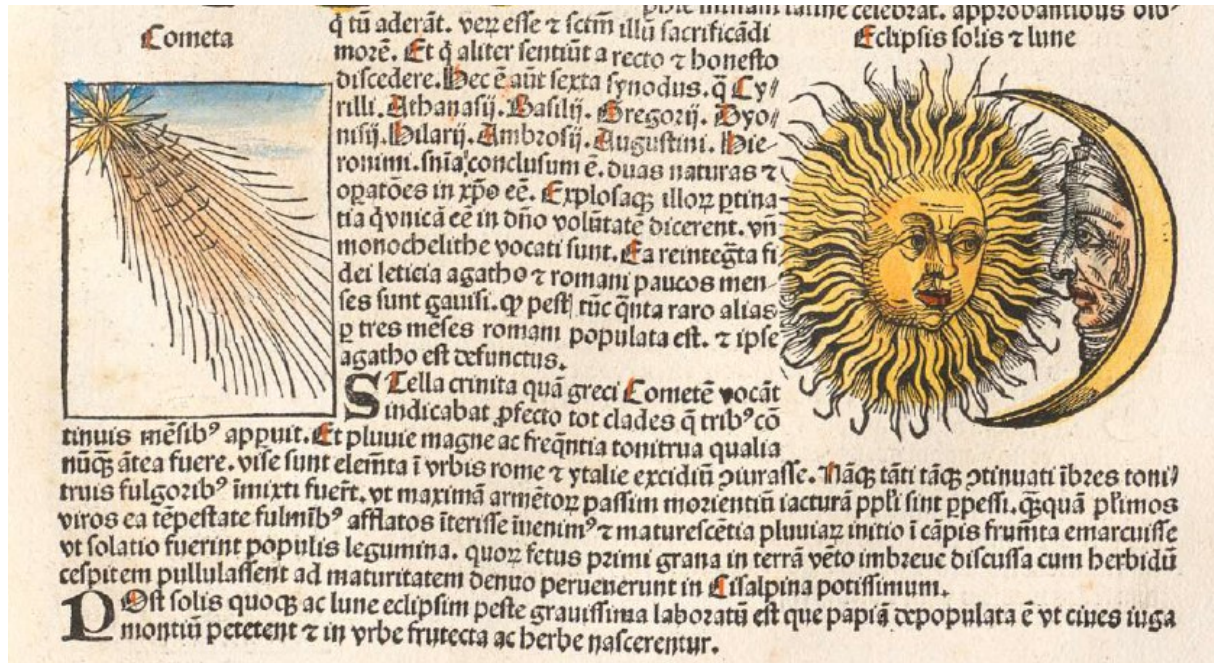 Cometa
q̄ tū aderāt. veꝝ esse ⁊ sctm̄ illū sacrificādi
morē. Et q̄ aliter sentiūt a recto ⁊ honesto
discedere. Hec ē aūt sexta synodus. q̄ Cy⸗
rilli. Athanasij. Basilij. Gregorij. Dyo⸗
nisij. Hilarij. Ambrosij. Augustini. Hie⸗
ronimi. sn̄ia conclusum ē. duas naturas ⁊
oꝑatōes in xp̄o eē. Explosaqꝫ illoꝝ ꝑtina
tia q̇ vnicā eē in dn̄o volūtatē dicerent. vn̄
monochelithe vocati sunt. Ea reintegr̄ta fi
dei leticia agatho ⁊ romani paucos men⸗
ses sunt gauisi. qꝛ pest̄ tūc q̄nta raro alias
ꝑ tres mēses romam populata est. ⁊ ipse
agatho est defunctus.
Eclipsis solis ⁊ lune
STella crinita quā greci Cometē vocāt
indicabat ꝓfecto tot clades q̄ tribꝰ cō
tinuis mēsibꝰ apꝑuit. Et pluuie magne ac freq̄ntia tonitrua qualia
nūqꝫ ātea fuere. vise sunt elemēta ī vrbis rome ⁊ ytalie excidiū ꝯiurasse. Nāqꝫ tāti tāqꝫ ꝯtinuati ībres toni⸗
truis fulgoribꝰ īmixti fuer̄t. vt maximā armētoꝝ passim morientiū iacturā pp̄li sint ꝑpessi. q̄ꝫquā pl̄imos
viros ea tēpestate fulmībꝰ afflatos īterisse īuenimꝰ ⁊ maturescētia pluuiaꝝ initio ī cāpis frum̄ta emarcuisse
vt solatio fuerint populis legumina. quoꝝ fetus primi grana in terrā vēto imbreue discussa cum herbidū
cespitem pullulassent ad maturitatem denuo peruenerunt in Cisalpina potissimum.
POst solis quoqꝫ ac lune eclipsim peste grauissima laboratū est que papiā depopulata ē vt ciues iuga
montiū petetent ⁊ in vrbe frutecta ac herbe nascerentur.